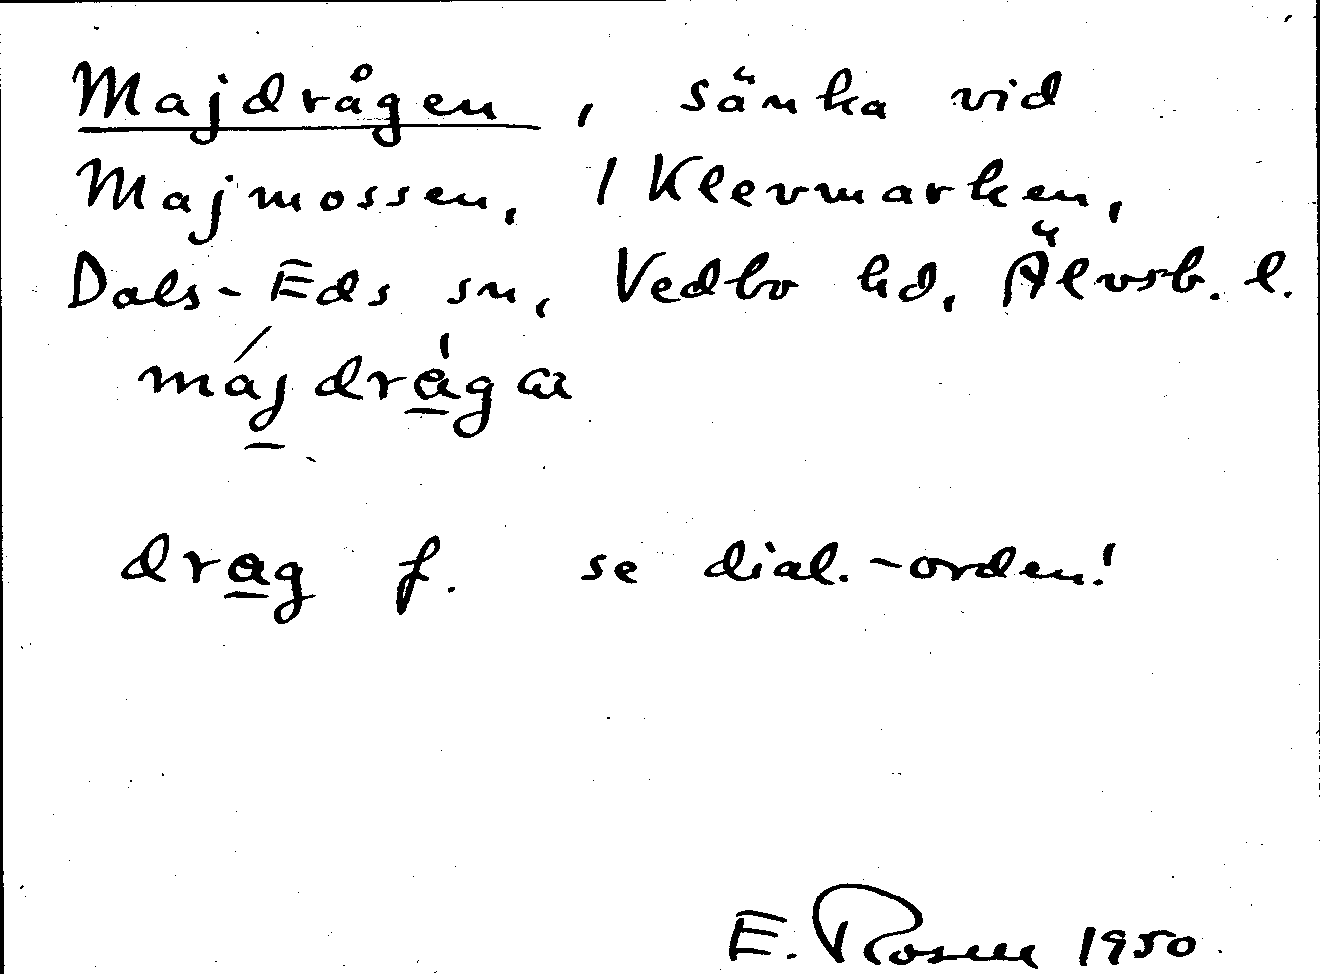 Majdrågen, sänka vid
Majmossen, 1 Klevmarken,
Dals-Eds sn, Vedbo hd, Älvsb. l.
májdrågaı
drag f. se dial.-orden!
E. Rosell 1950